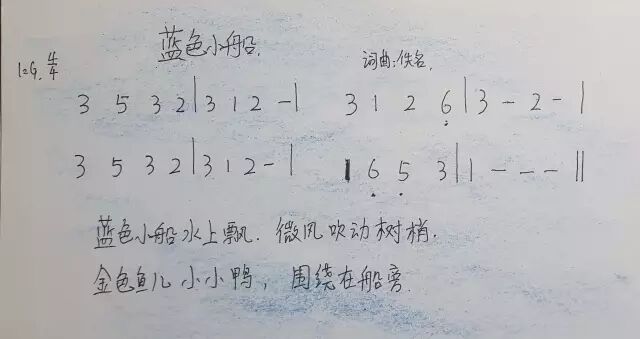 蓝色小船
1=G 4/4 词曲:佚名.
3 5 3 2|3 1 2 -| 3 1 2 6̣|3 - 2 -|
3 5 3 2|3 1 2 -| 1 6̣ 5̣ 3|1 - - -‖
蓝色小船水上飘. 微风吹动树梢.
金色鱼儿小小鸭, 围绕在船旁.